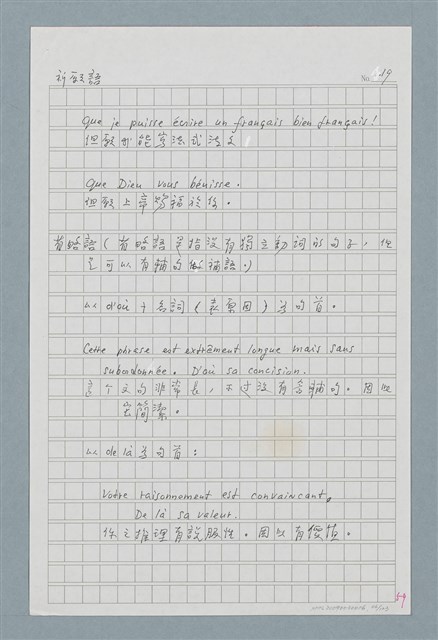 祈願語
No. 19
Que je puisse écrire un français bien français!
但願我能寫法式法文
Que Dieu vous bénisse.
但願上帝賜福於你。
省略語(省略語是指沒有獨立動詞的句子,但
是可以有輔句做補語。)
以 d'où + 名詞(表原因)為句首。
Cette phrase est extrêment longue mais sans
subordonnée. D'où sa concision.
這个文句非常長,不过沒有含輔句。因此
簡潔。
以 de là 為句首:
Votre raisonnement est convaincant,
De là sa valeur.
你之推理有說服性。因以有價值。